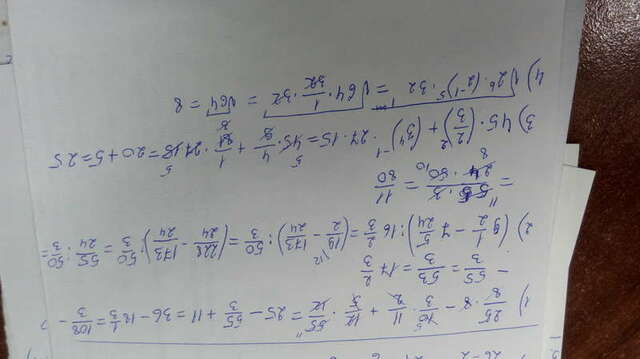 1) 25/8 · 8 − 10/3 · 11/2 + 12/5 · 55/12 = 25 − 55/3 + 11 = 36 − 18 1/3 = 108/3 −
− 55/3 = 53/3 = 17 2/3
2) (9 1/2 − 7 5/24) : 16 2/3 = (19/2 − 173/24) : 50/3 = (228/24 − 173/24) : 50/3 = 55/24 : 50/3 =
= 55 · 3 / 24 · 50 = 11/80
3) 45 · (2/3)² + (3⁴)⁻¹ · 27 · 15 = 45 · 4/9 + 1/81 · 27 · 15 = 20 + 5 = 25
4) √(2⁶ · (2⁻¹)⁵ · 32) = √(64 · 1/32 · 32) = √64 = 8